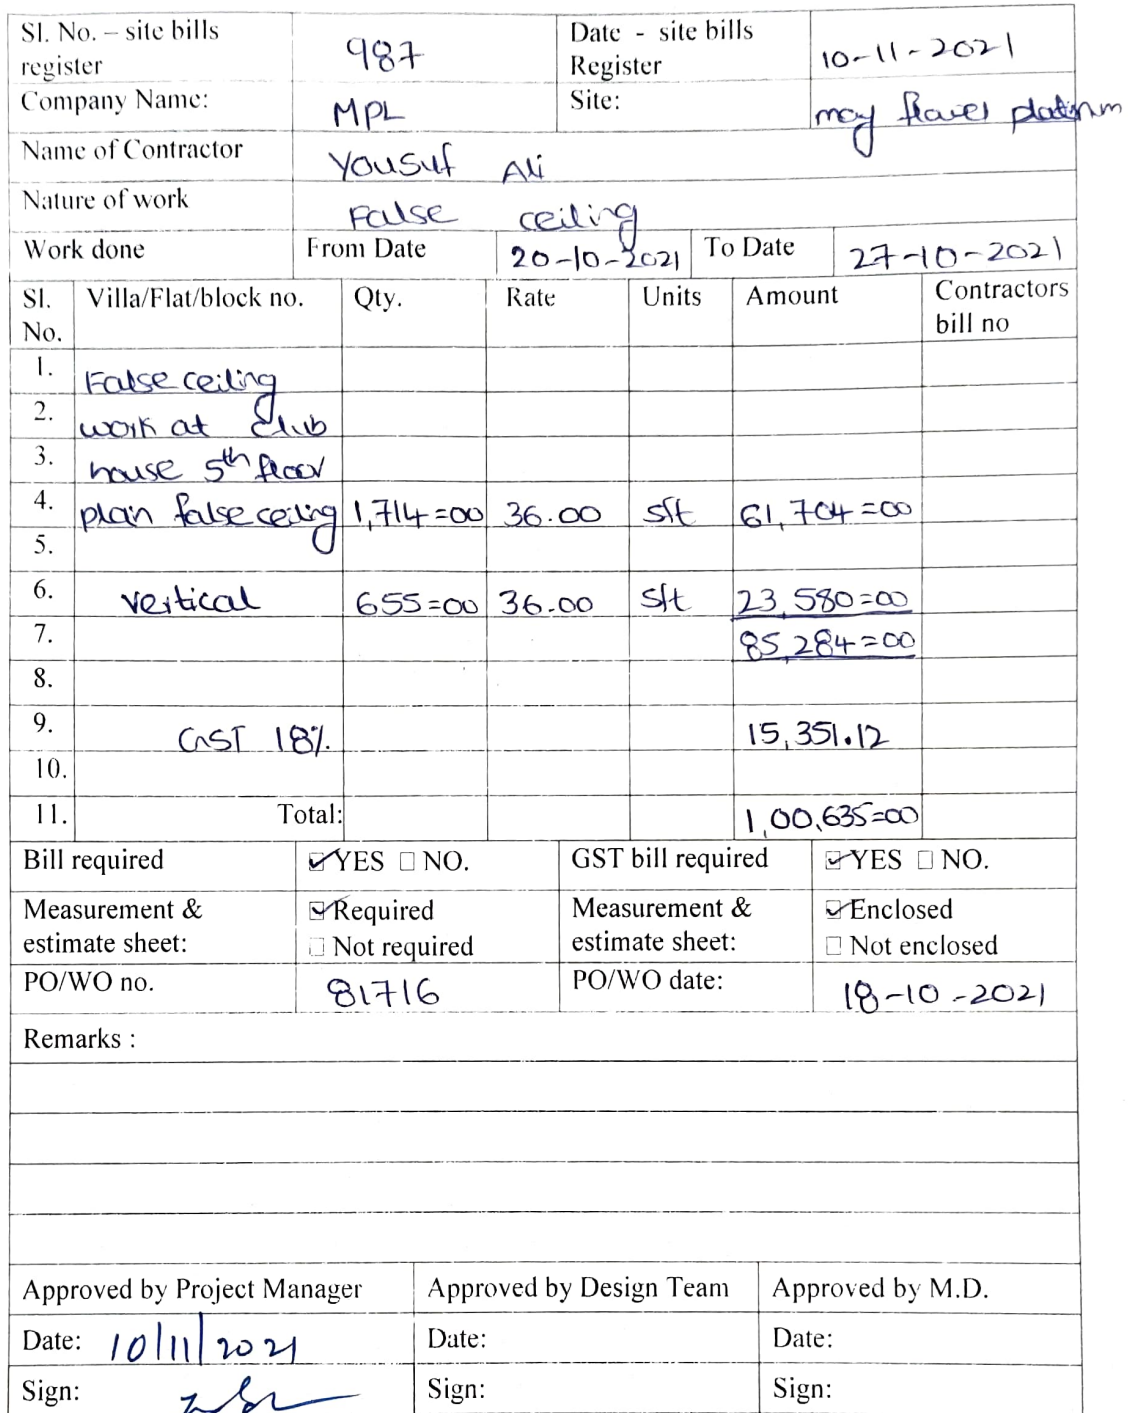 Sl. No. – site bills register 987 Date - site bills Register 10-11-2021
Company Name: MPL Site: may flower platinum
Name of Contractor Yousuf Ali
Nature of work False ceiling
Work done From Date 20-10-2021 To Date 27-10-2021
Sl. No. Villa/Flat/block no. Qty. Rate Units Amount Contractors bill no
1. False ceiling
2. work at club
3. house 5th floor
4. plain false ceiling 1,714=00 36.00 sft 61,704=00
5.
6. vertical 655=00 36.00 sft 23,580=00
7. 85,284=00
8.
9. GST 18% 15,351.12
10.
11. Total: 1,00,635=00
Bill required ☑YES ☐ NO. GST bill required ☑YES ☐ NO.
Measurement & estimate sheet: ☑Required ☐ Not required Measurement & estimate sheet: ☑Enclosed ☐ Not enclosed
PO/WO no. 81716 PO/WO date: 18-10-2021
Remarks :
Approved by Project Manager Approved by Design Team Approved by M.D.
Date: 10/11/2021 Date: Date:
Sign: Sign: Sign: